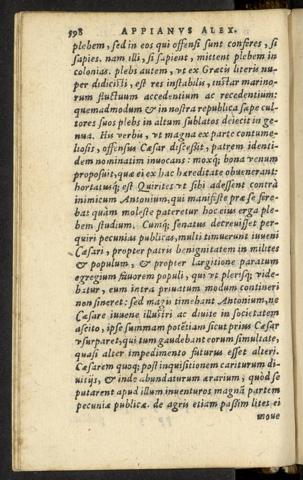 598 APPIANVS ALEX.
plebem, sed in eos qui offensi sunt conseres, si
sapies. nam illi, si sapient, mittent plebem in
colonias. plebi autem, vt ex Græcis literis nu-
per didicisti, est res instabilis, instar marino-
rum fluctuum accedentium ac recedentium:
quemadmodum & in nostra republica sæpe cul-
tores suos plebs in altum sublatos deiecit in ge-
nua. His verbis, vt magna ex parte contume-
liosis, offensus Cæsar discessit, patrem identi-
dem nominatim inuocans: moxq; bona venum
proposuit, quæ ei ex hac hæreditate obuenerant:
hortatusq; est Quirites vt sibi adessent contrà
inimicum Antonium, qui manifestè præ se fer-
bat quàm molestè pateretur hoc eius erga ple-
bem studium. Cumq; senatus decreuisset per-
quiri pecunias publicas, multi timuerunt iuueni
Cæsari, propter patris benignitatem in milites
& populum, & propter largitione paratum
egregium fauorem populi, qui vt plerisq; vide-
batur, eum intra priuatum modum contineri
non sineret: sed magis timebant Antonium, ne
Cæsare iuuene illustri ac diuite in societatem
ascito, ipse summam potestatem sicut prius Cæsar
vsurparet, qui tum gaudebant eorum simultate,
quasi alter impedimento futurus esset alteri.
Cæsarem quoq; post inquisitionem cariturum di-
uitiis, & inde abundaturum ærarium, quòd se
putarent apud illum inuenturos magnã partem
pecuniæ publicæ. de agris etiam passim lites ei
moue